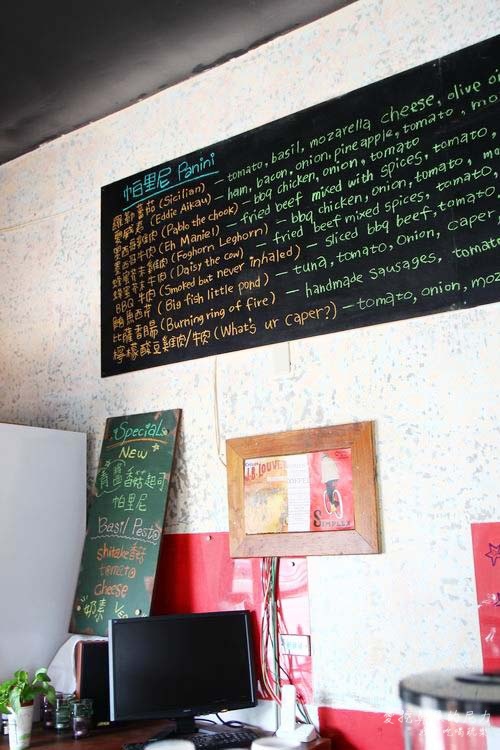 帕里尼 Panini
羅勒蕃茄 (Sicilian) – tomato, basil, mozarella cheese, olive oi
夏威夷 (Eddie Aikau) – ham, bacon, onion, pineapple, tomato, mo
墨西哥雞肉 (Pablo the chook) – bbq chicken, onion, tomato
墨西哥牛肉 (Eh Maniel) – fried beef mixed with spices, tomato,
蜂蜜芥末雞肉 (Foghorn Leghorn) – bbq chicken, onion, tomato, mo
蜂蜜芥末牛肉 (Daisy the cow) – fried beef mixed spices, tomato,
BBQ 牛肉 (Smoked but never inhaled) – sliced bbq beef, tomato,
鮪魚西芹 (Big fish little pond) – tuna, tomato, onion, caper,
比薩香腸 (Burning ring of fire) – handmade sausages, tomato
檸檬酸豆雞肉/牛肉 (What's ur caper?) – tomato, onion, moz
Specials
New
青醬香菇起司
帕里尼
Basil Pesto
shitake香菇
tomato
cheese
奶素
SIMPLEX